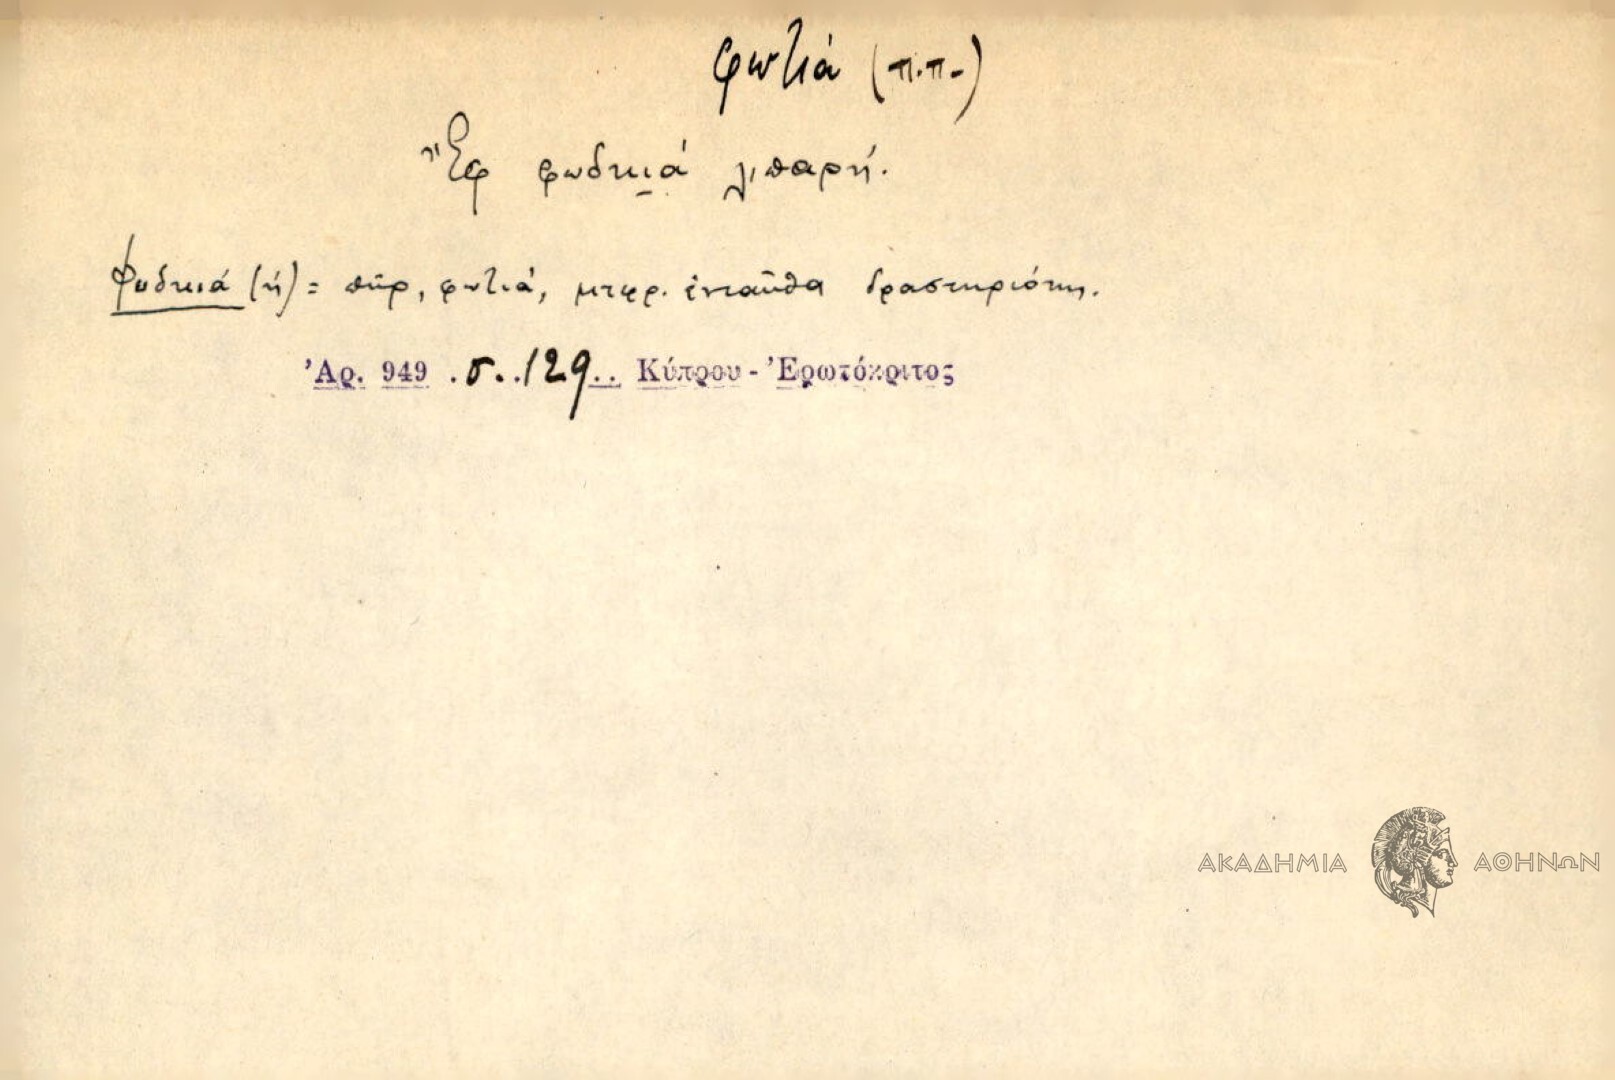 φωτιά (π.π.)
Ἔφ φωδκιά λιπαρή.
Φωδκιά (ἡ) = πῦρ, φωτιά, μτφρ. ἐνταῦθα δραστηριότης.
Ἀρ. 949 . σ. . 129 . . Κύπρου - Ἐρωτόκριτος
ΑΚΑΔΗΜΙΑ ΑΘΗΝΩΝ